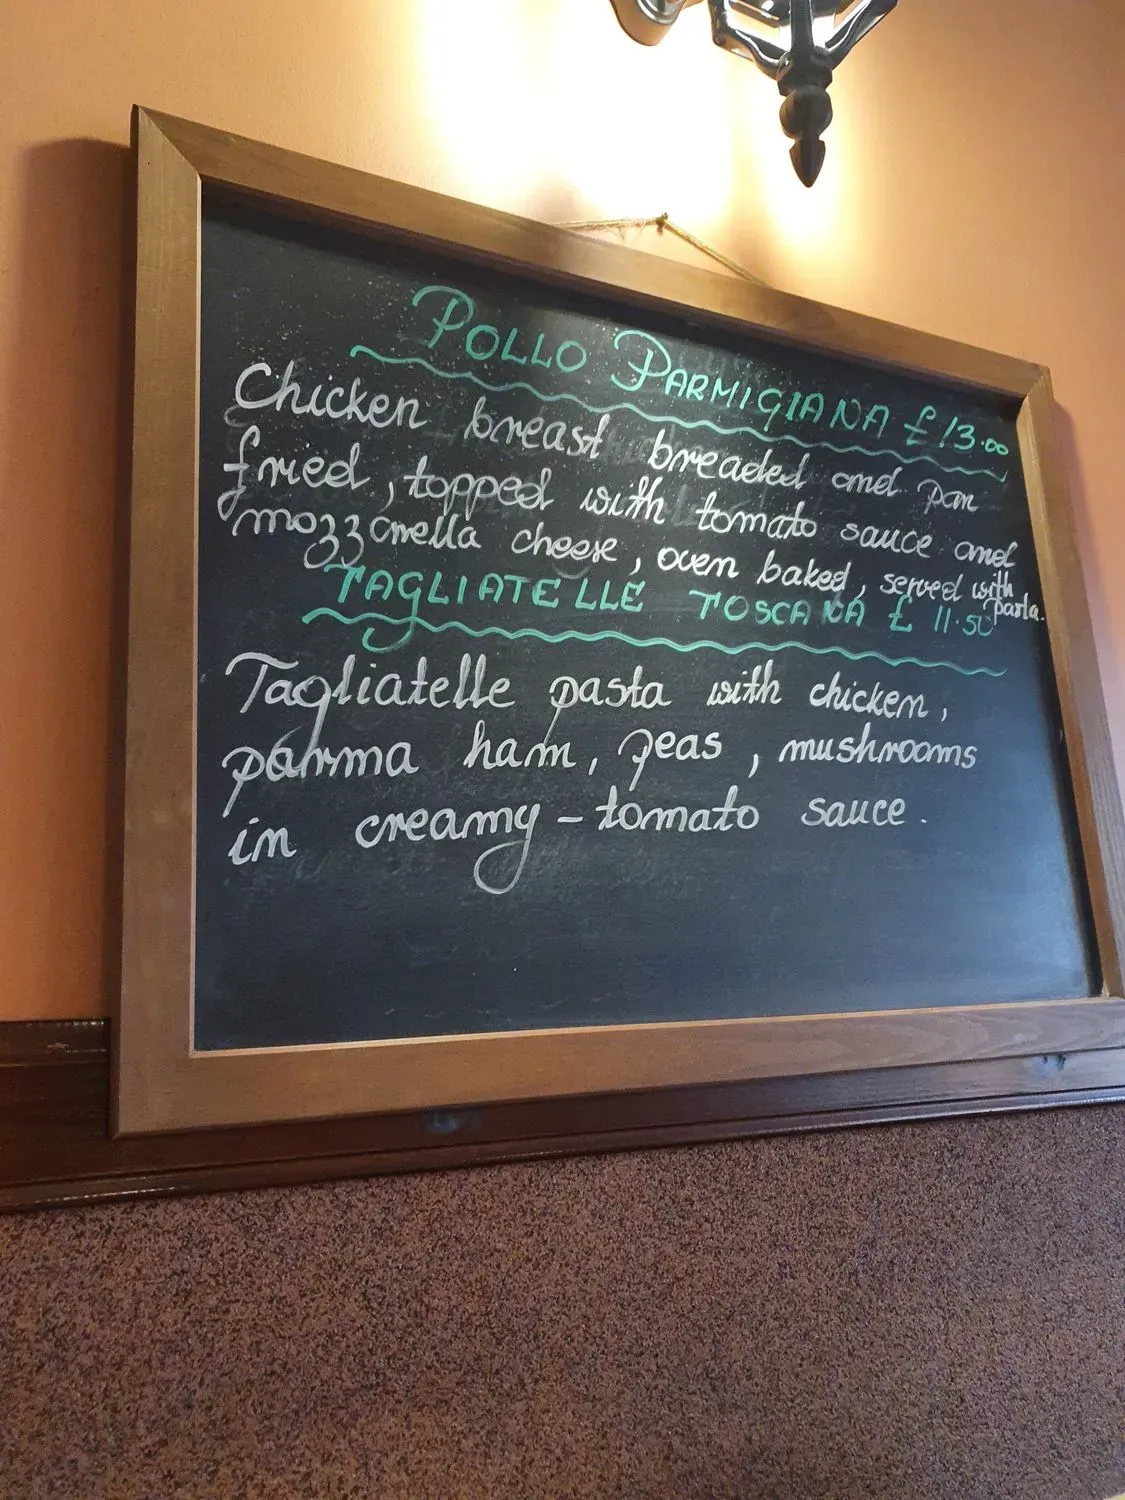 POLLO PARMIGIANA £13.00
Chicken breast breaded and pan
fried, topped with tomato sauce and
mozzarella cheese, oven baked, served with
pasta.
TAGLIATELLE TOSCANA £ 11.50
Tagliatelle pasta with chicken,
parma ham, peas, mushrooms
in creamy-tomato sauce.